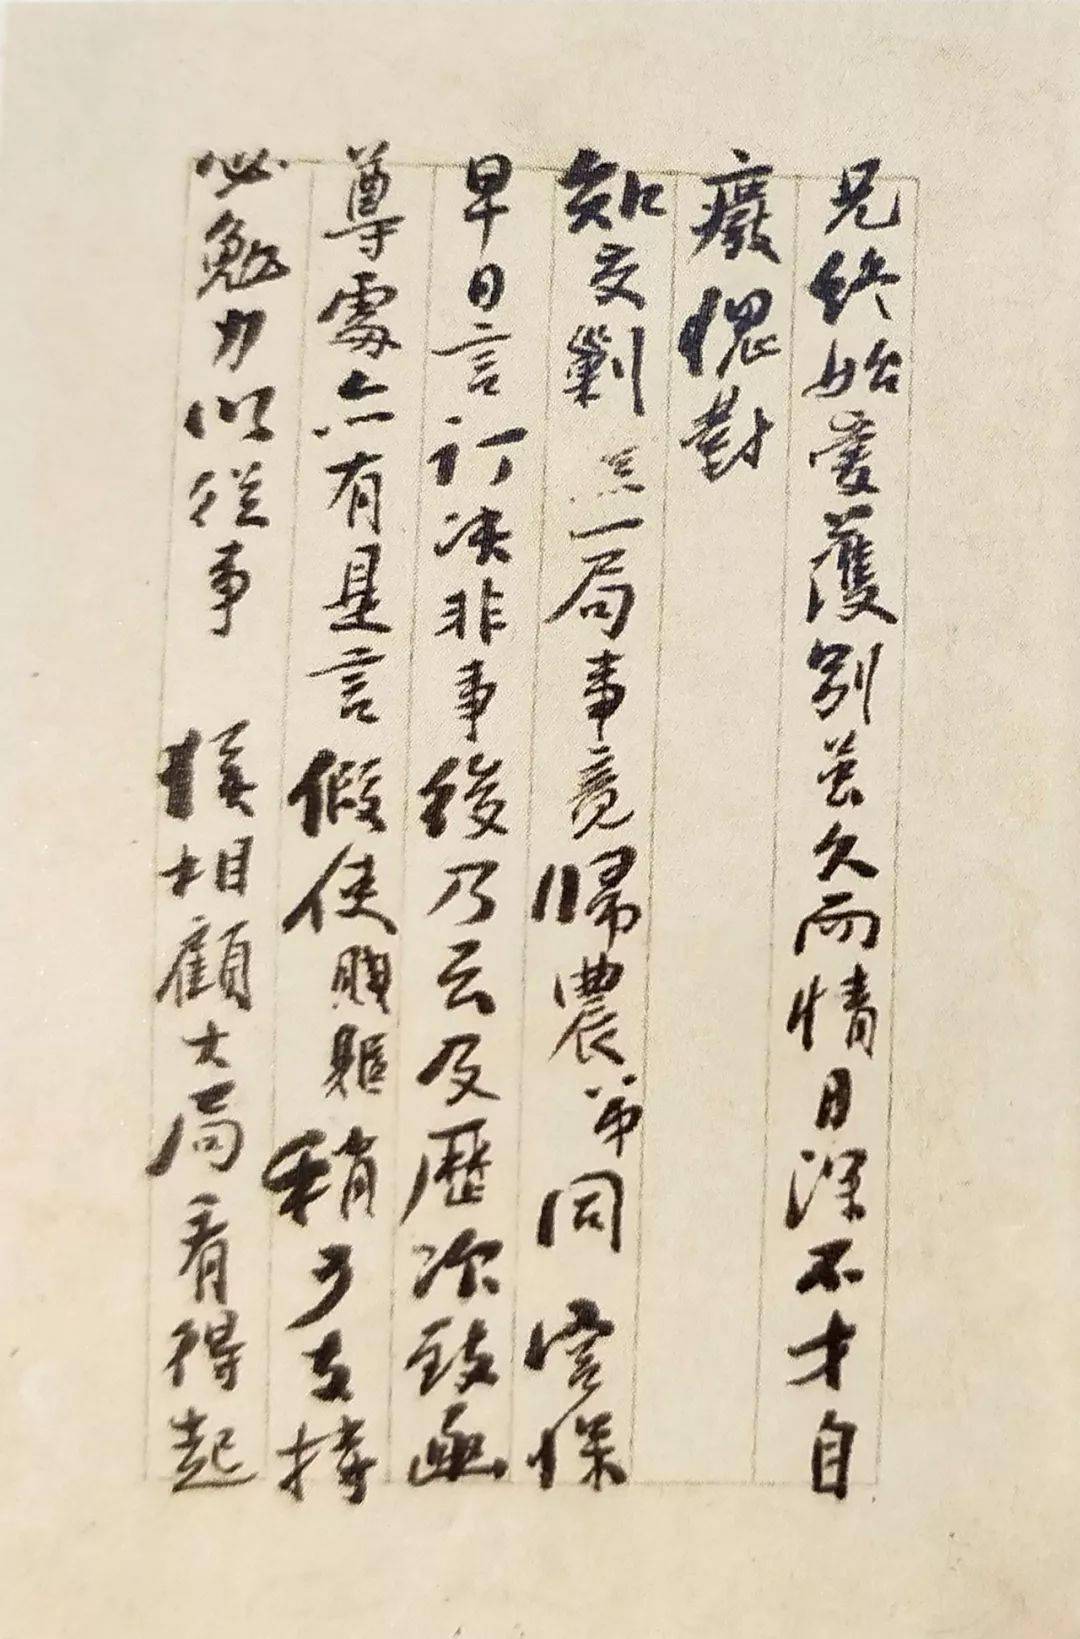 兄終始愛護別並久而情日深不才自
癈愧對
知交剿一局事竟歸農弟同
早日言訂决非事後乃云及歷次致函
尊處亦有是言假使賤軀稍可支持
必勉力以從事 相顧大局看得起